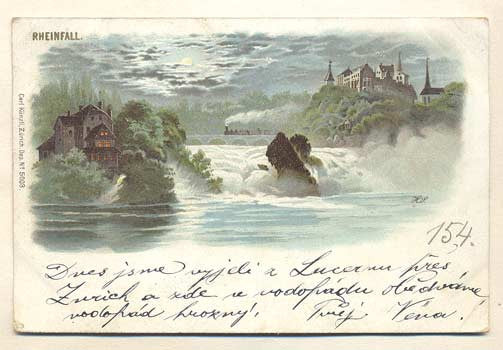 RHEINFALL.
Carl Künzli, Zürich Dep. Nº 5009.
154.
Dnes jsme vyjeli z Lucernu přes
Zurich a zde u vodopádu obědváme
vodopád hrozný! Tvůj Véna.